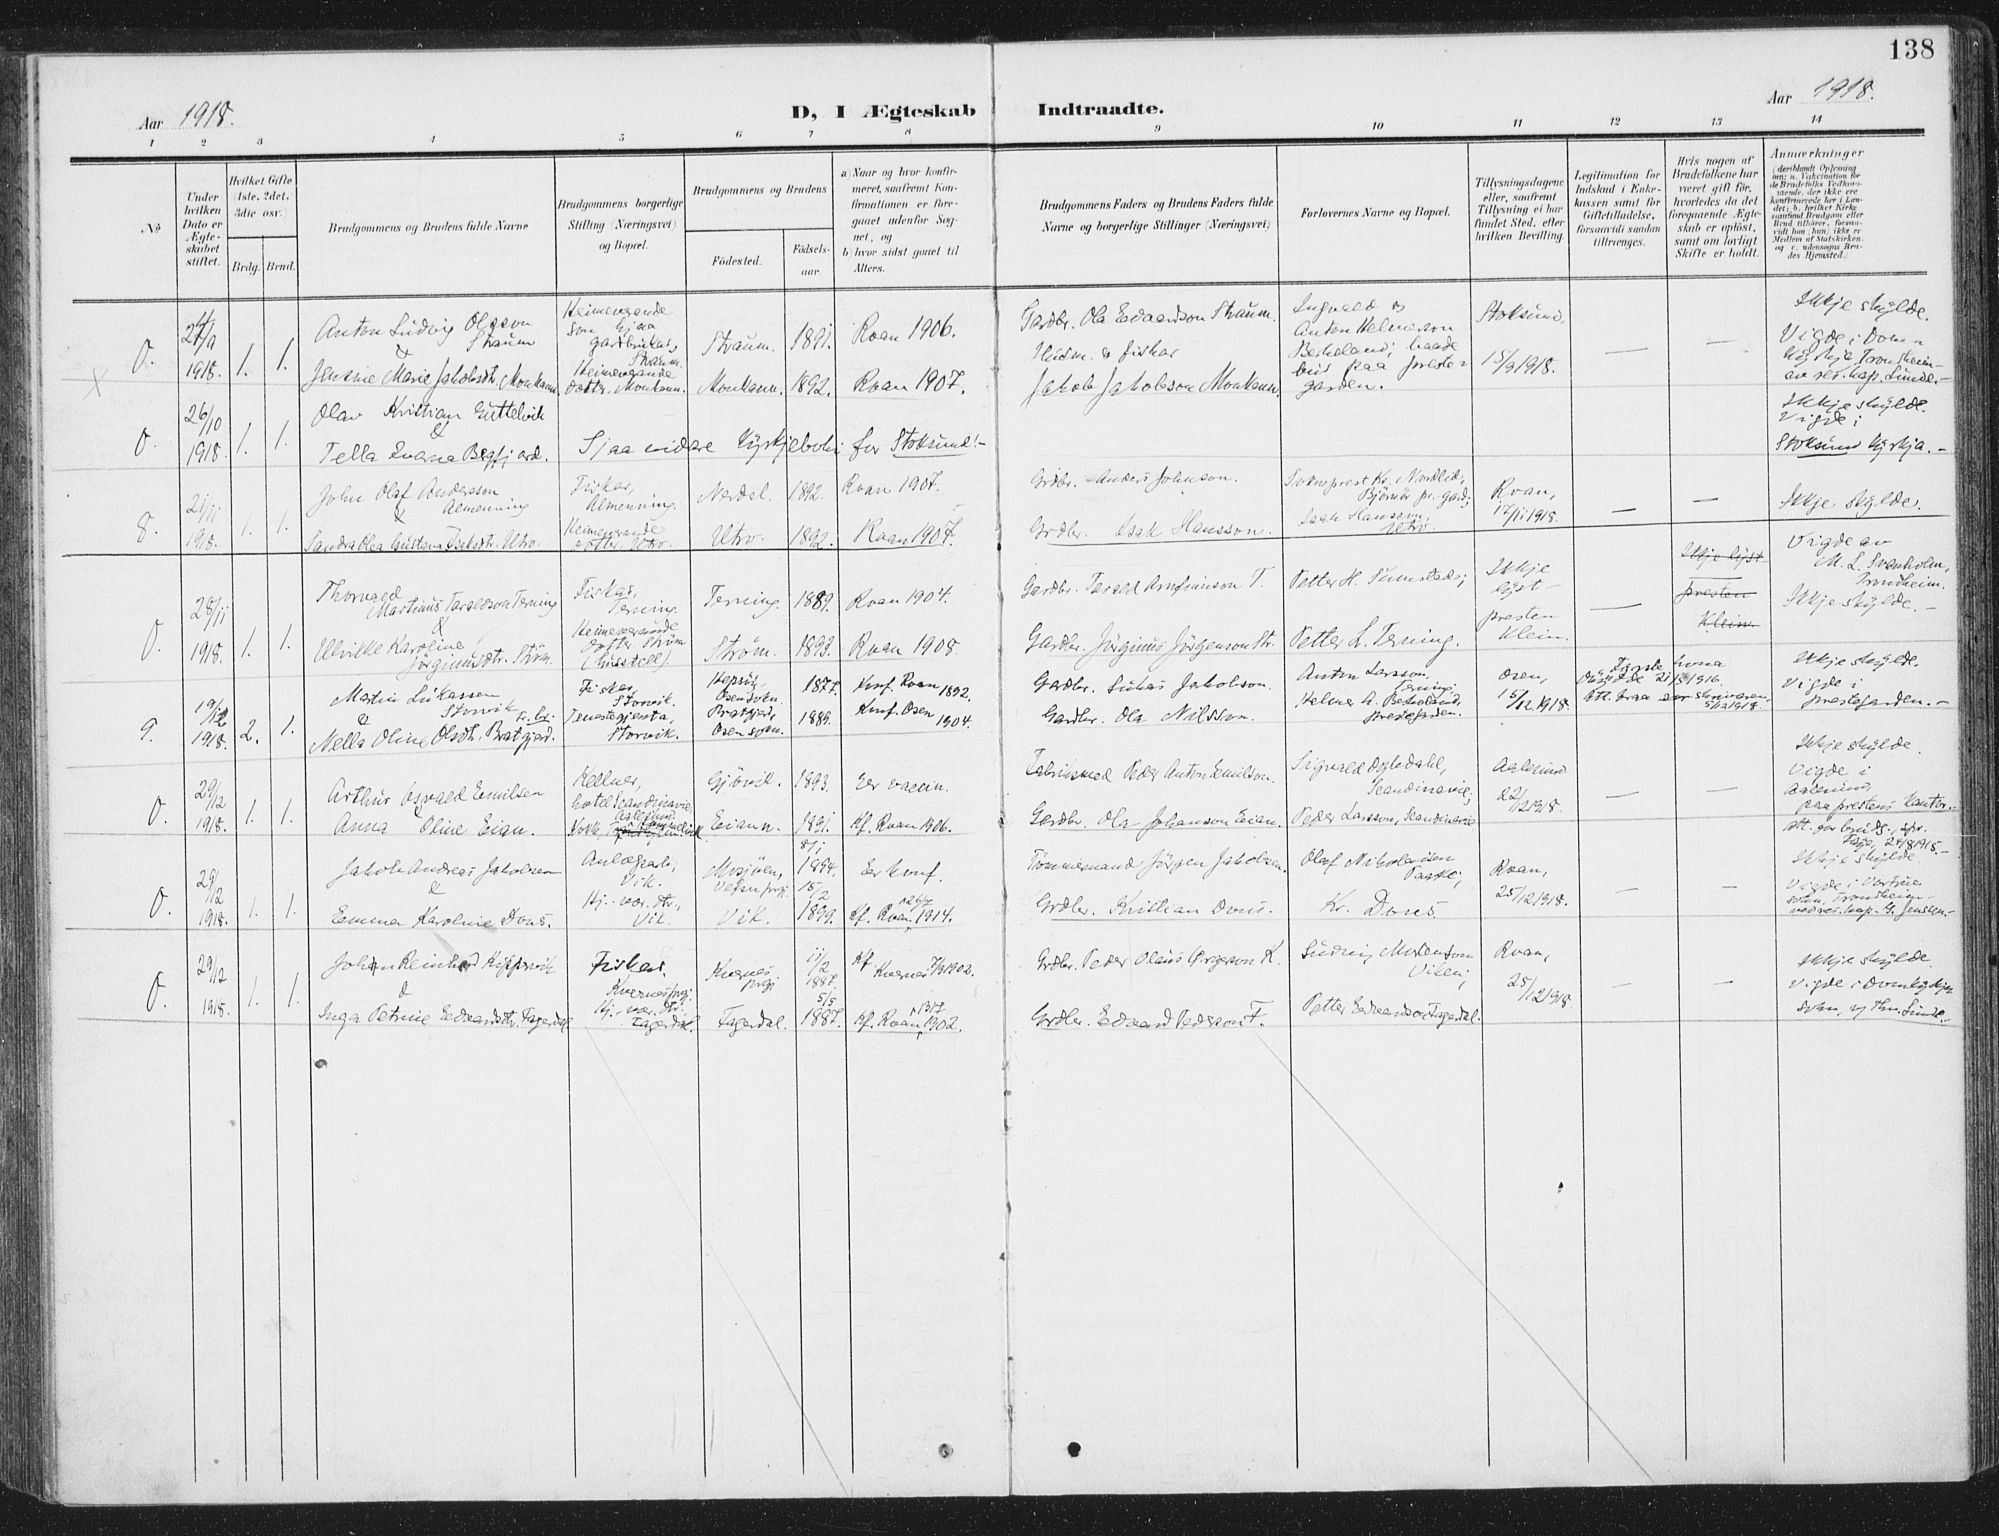 138
Aar 1918.
D, I Ægteskab Indtraadte.
Aar 1918.
1 2 3 4 5 6 7 8 9 10 11 12 13 14
No
Under hvilken Dato er Ægteskabet stiftet.
Hvilket Gifte (1ste, 2det, 3die osv.)
Brdg. Brud.
Brudgommens og Brudens fulde Navne
Brudgommens borgerlige Stilling (Næringsvei) og Bopæl.
Brudgommens og Brudens
Fødested. Fødselsaar.
a) Naar og hvor konfirmeret, saafremt Konfirmationen er foregaaet udenfor Sognet, og
b) hvor sidst gaaet til Alters.
Brudgommens Faders og Brudens Faders fulde Navne og borgerlige Stillinger (Næringsvei)
Forlovernes Navne og Bopæl.
Tillysningsdagene eller, saafremt Tillysning ei har fundet Sted, efter hvilken Bevilling.
Legitimation for Indskud i Enkekassen samt for Giftetilladelse, forsaavidt saadan tiltrænges.
Hvis nogen af Brudefolkene har været gift før, hvorledes da det foregaaende Ægteskab er opløst, samt om lovligt Skifte er holdt.
Anmærkninger
0. 1918. 1. 1.
Anton Ludvig Olsson Straum
&
Jensine Marie Jakobsdtr. Monkann.
Heimeverande son hjaa gardbrukar, Straum.
Heimeverande dotter, Monkann.
Straum. 1891. Roan 1906.
Monkann. 1892. Roan 1907.
Gardbr. Ola Edvardson Straum.
Husm. & fiskar
Jakob Jakobson Monkann.
Ingvald og Anton Helmerson Beskeland; baade bus paa prestegarden.
Stoksund, 15/9 1918.
— —
Ikkje skylde.
Vigde i Domkyrkja Trondheim av res. kap. Lunde.-
0. 26/10 1918. 1. 1.
Olav Kristian Guttelvik
&
Tella Ivana Bergfjord.
Sjaa vidare Kyrkjeboki for Stoksund!-
Ikkje skylde.
Vigde i
Stoksund kyrkja.-
8. 21/11 1918. 1. 1.
John Olaf Andersson Almenning
&
Sandra Olea Gustava Isaksdtr. Utro.
Fiskar, Almenning
Heimeverande dotter, Utro.
Nerdal. 1892. Roan 1907.
Utro. 1892. Roan 1907.
Grdbr. Anders Johnson.
Grdbr. Isak Hansson.
Sokneprest Kr. Nordlid, Bjørnør pr. gard;
Isak Hansson, Utro
Roan, 17/11 1918.
— —
Ikkje skylde.
0. 28/11 1918. 1. 1.
Thorvald Martinus Taraldson Terning
&
Ulrikke Karoline Jørginusdtr. Strøm.
Fiskar, Terning.
Heimeverande dotter Strøm
Terning. 1889. Roan 1904.
Strøm. 1893. Roan 1908.
Gardbr. Tarald Arnfinnson T.
Gardbr. Jørginus Jørgenson Str.
Petter H. Sumstad;
Petter L. Terning.
Ikkje lyst - presten Klein.
—
Ikkje lyst - presten Klein
Vigde av M. L. Svenholm, Trondheim.
Ikkje skylde.-
9. 19/12 1918. 2. 1.
Martin Lukassen Storvik
&
Nella Oline Olsdtr. Bratgjerd.
Fiskar, Storvik.
Tenestegjenta, Storvik.
Hopsøy, Osen sokn. 1877. Konf. Roan 1892.
Bratgjerd, Osen sokn. 1889. Konf. Osen 1904.
Gardbr. Lukas Jakobson.
Gardbr. Ola Nilsson.
Anton Larsson, Terning;
Helmer A. Beskeland, prestegarden.
Osen, 15/12 1918.
Fyrste kona døydde 21/5 1916.
Att. fraa sorskrivaren 5/12 1918.
Ikkje skylde.
Vigde i prestegarden.-
0. 29/12 1918. 1. 1.
Arthur Osvald Emilsen
&
Anna Oline Eian.
Kellner, hotel Scandinavie Aalesund.
Gjøvik. 1893. Er vaccin.
Eiann. 1891. Kf. Roan 1906.
Fabriksmed Peder Anton Emilson.
Gardbr. Ola Johanson Eian.
Sigvald Opledahl, Scandinavie;
Peder Larsson, Scandinavie
Aalesund 22/12 1918.
— —
Ikkje skylde.
Vigde i Aalesund, paa prestens kontor.
0. 29/12 1918. 1. 1.
Jakob Andreas Jakobsen
&
Emma Karoline Dons.
Anlægsarb., Vik.
Hj. vær. dtr., Vik.
Mosjøen, Vefsn prgj. 8/1 1894. Er konf.
Vik. 15/2 1899. Kf. Roan 1914.
Tømmermand Jørgen Jakobsen.
Grdbr. Kristian Dons.
Olaf Nikolaisen
Kr. Dons.
Roan, 25/12 1918.
— —
Ikkje skylde.
0. 29/12 1918. 1. 1.
Johan Reinhard Kippervik
&
Inga Petrine Edvardsdtr. Fagerdal.
Fiskar, Kvernes prgj.
Hj. vær. dtr. Fagerdal.
Kvernes prgj 11/2 1887. Kf. Kvernes 1902.
Fagerdal. 5/5 1887. Kf. Roan 1902.
Grdbr. Peder Olaus Ørgerson K.
Grdbr. Edvard Pederson F.
Ludvig Mortenson
Petter Edvardson Fagerdal.
Roan, 25/12 1918.
— —
Ikkje skylde.
Vigde i Domkyrkje sokn,